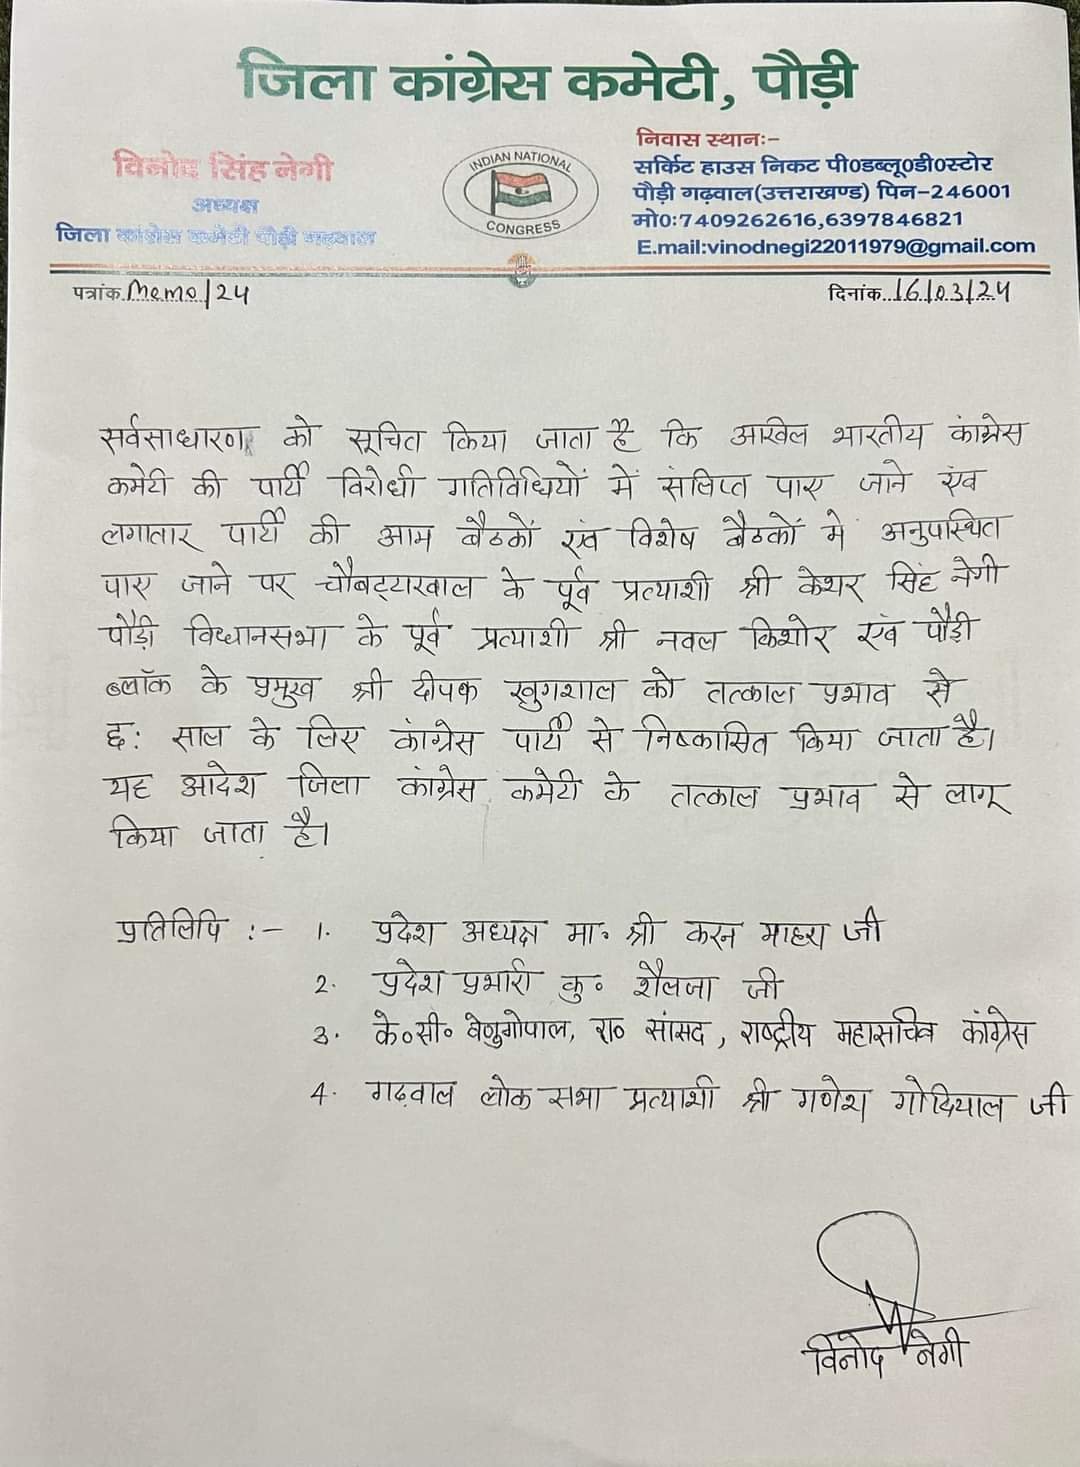 जिला कांग्रेस कमेटी, पौड़ी
विनोद सिंह नेगी
अध्यक्ष
जिला कांग्रेस कमेटी पौड़ी गढ़वाल
INDIAN NATIONAL
CONGRESS
निवास स्थानः-
सर्किट हाउस निकट पी0डब्लू0डी0स्टोर
पौड़ी गढ़वाल(उत्तराखण्ड) पिन-246001
मो0:7409262616,6397846821
E.mail:vinodnegi22011979@gmail.com
पत्रांक.Memo/24
दिनांक..16/03/24
सर्वसाधारण को सूचित किया जाता है कि अखिल भारतीय कांग्रेस
कमेटी की पार्टी विरोधी गतिविधियों में संलिप्त पाए जाने एंव
लगातार पार्टी की आम बैठकों एंव विशेष बैठकों मे अनुपस्थित
पाए जाने पर चौबट्टाखाल के पूर्व प्रत्याशी श्री केशर सिंह नेगी
पौड़ी विधानसभा के पूर्व प्रत्याशी श्री नवल किशोर एंव पौड़ी
ब्लॉक के प्रमुख श्री दीपक खुगशाल को तत्काल प्रभाव से
छ: साल के लिए कांग्रेस पार्टी से निष्कासित किया जाता है।
यह आदेश जिला कांग्रेस कमेटी के तत्काल प्रभाव से लागू
किया जाता है।
प्रतिलिपि :- 1. प्रदेश अध्यक्ष मा॰ श्री करन माहरा जी
2. प्रदेश प्रभारी कु॰ शैलजा जी
3. के॰सी॰ वेणुगोपाल, रा॰ सांसद, राष्ट्रीय महासचिव कांग्रेस
4. गढ़वाल लोक सभा प्रत्याशी श्री गणेश गोदियाल जी
विनोद नेगी